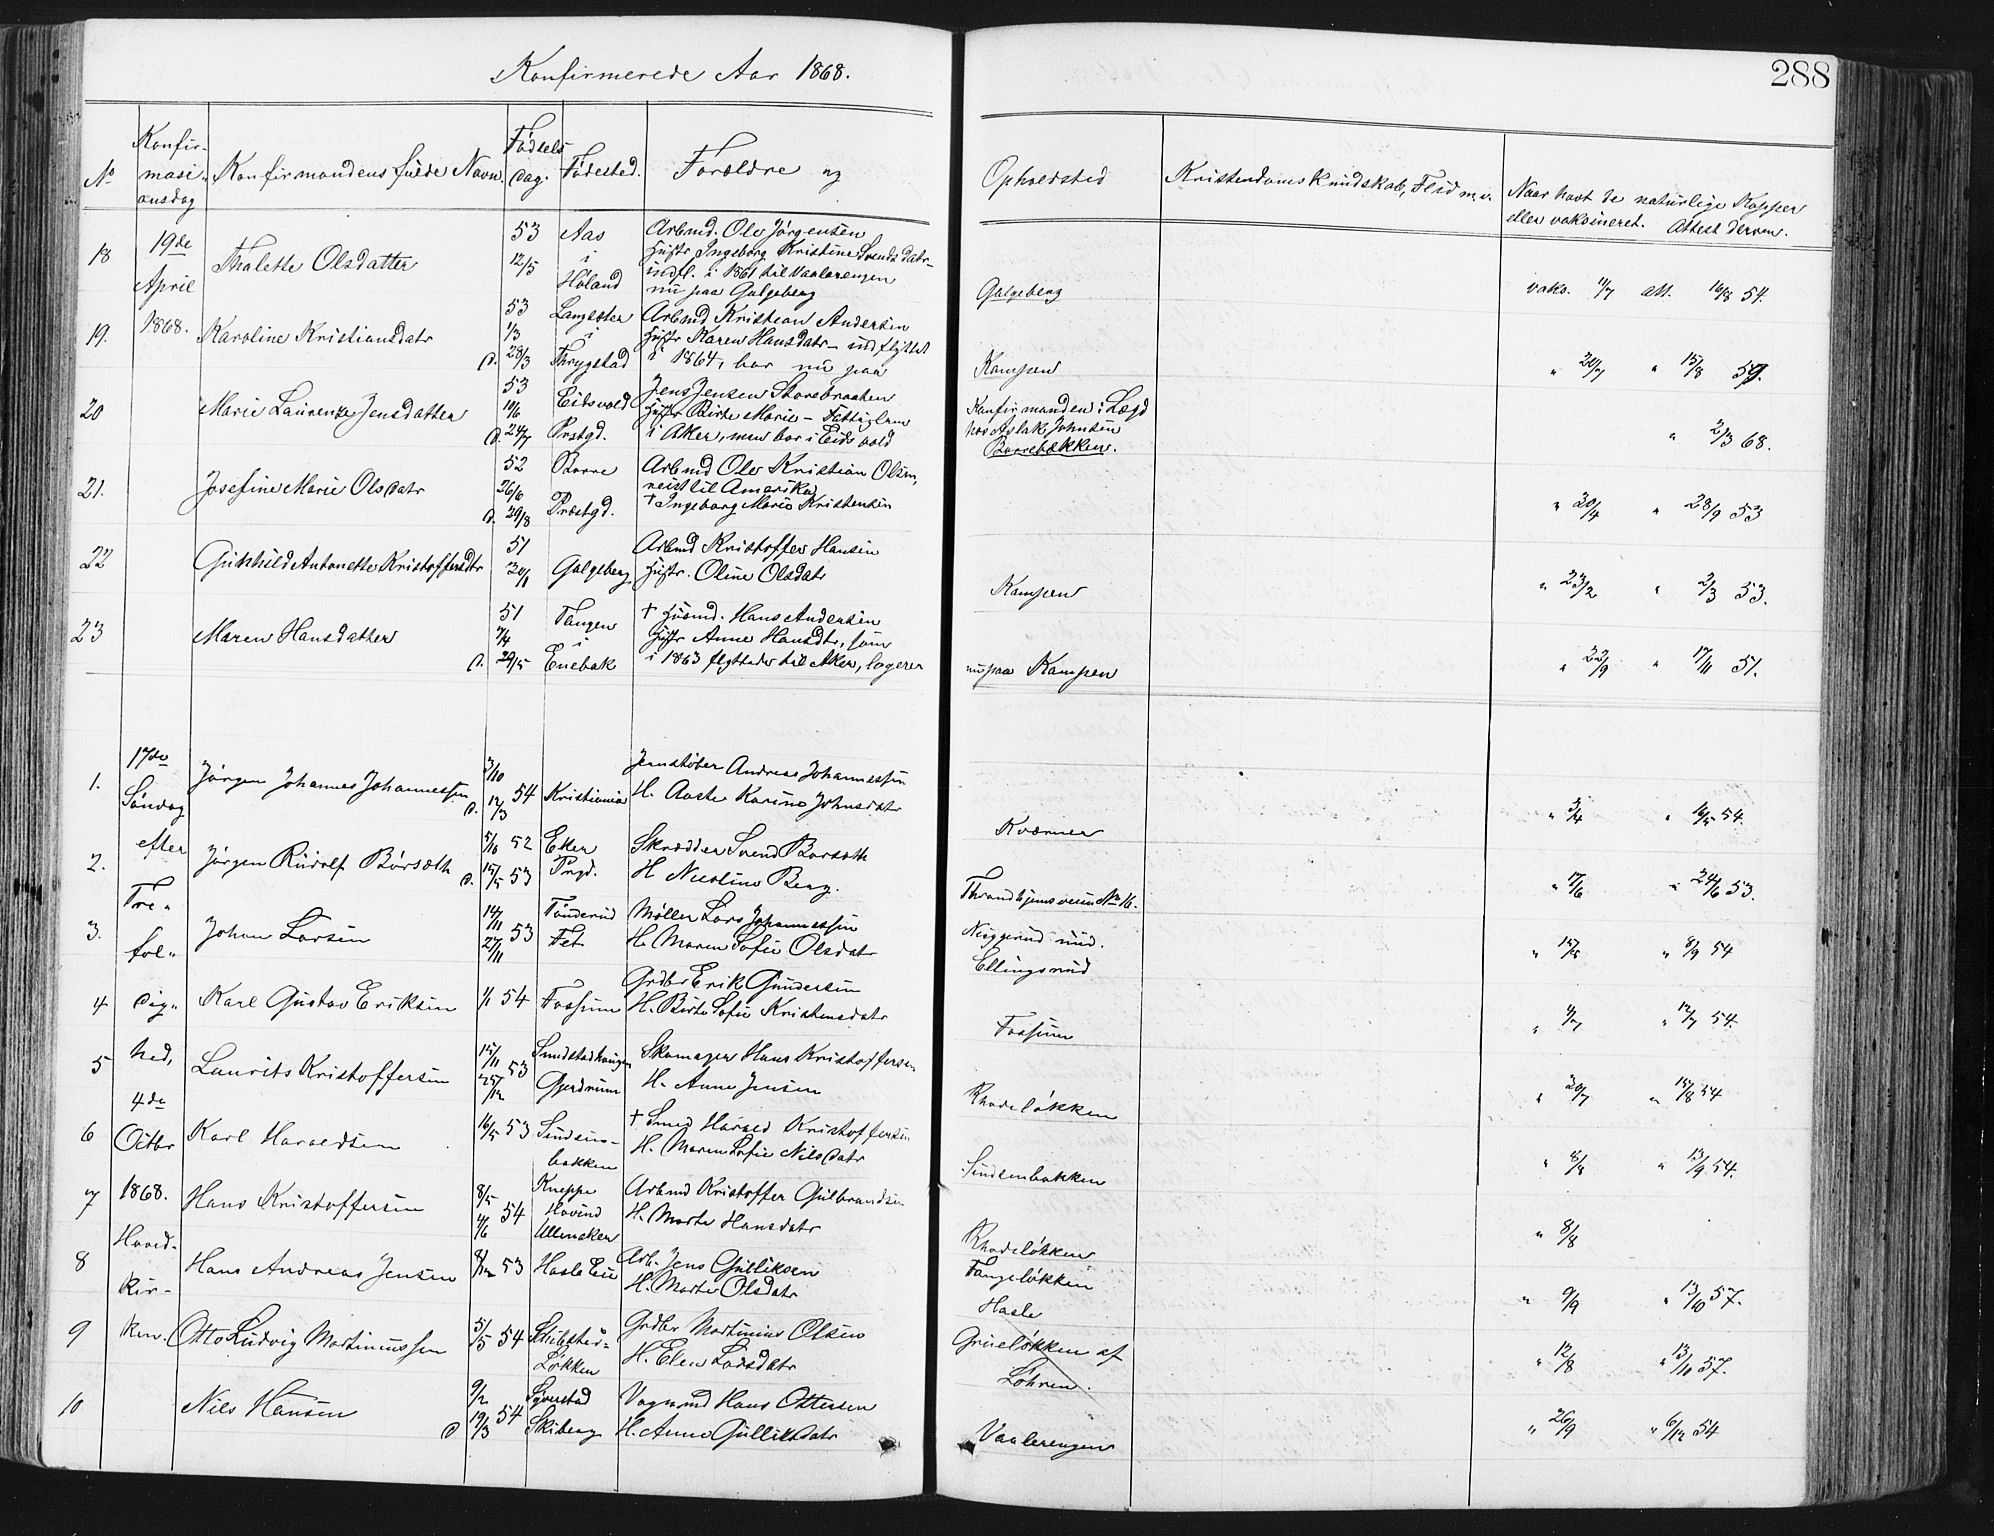 Konfirmerede Aar 1868.
288
No
Konfir-
masi-
onsdag
Konfirmandens fulde Navn.
Fødsels
dag.
Fødested.
Forældre og
Opholdsted
Kristendoms Kundskab, Flid m.v.
Naar havt de naturlige Kopper
eller vaksineret. Attest derom.
19de
April
1868.
18 Thalette Olsdatter
53
12/5
Aas
i
Høland
Arbmd. Ole Jørgensen
Hustr Ingeborg Kristine Svendsdatr-
indfl. i 1861 til Vaalerengen
nu paa Galgeberg
Galgeberg
vaks. 11/7 att. 16/8 54.
19. Karoline Kristiansdatr
53
1/3
d. 28/3
Langsæter
i
Thrygstad
Arbmd Kristian Andersen
Hustr Karen Hansdatr- indflyttet
i 1864, bor nu paa
Kampen
" 20/7 " 15/8 59.
20 Marie Laurenze Jensdatter
53
10/6
d. 24/7
Eidsvold
Prstgd.
Jens Jensen Storebraaten
Hustr Birte Marie - Fattiglem
i Aker, men bor i Eidsvold
Konfirmanden i Lægd
hos Aslak Johnsen
Borrebækken.
" 2/3 68.
21. Josefine Marie Olsdatr
52
26/6
d. 29/8
Borre
Præstgd.
Arbmd Ole Kristian Olsen,
reist til Amerika
† Ingeborg Marie Kristensen
" 20/4 " 28/9 53
22 Gunhild Antonette Kristoffersdtr
51
Galgeberg
Arbmd Kristoffer Hansen
Hustr. Oline Olsdatr
Kampen
" 23/2 " 2/3 53.
23 Maren Hansdatter
51
7/4
d. 29/5
Tangen
i
Enebak
† Husmd. Hans Andersen
Hustr Anne Hansdtr, som
i 1863 flyttede til Aker, logerer
nu paa Kampen
" 22/9 " 17/11 51.
17de
Søndag
efter
Tre-
fol-
dig-
hed,
4de
Octbr
1868.
Hoved-
kir-
ken.
1. Jørgen Johannes Johannessen
3/10
d. 12/3 54
Kristiania
Jernstøber Andreas Johannessen
H. Aaste Karine Johnsdatr
Kværner
" 3/4 " 16/5 54.
2. Jørgen Rudolf Børseth
5/10 52
d. 15/5 53
Eker
Prgd.
Skrædder Svend Borseth
H Nicoline Berg.
Throndhjemsveien No 16.
" 17/6 " 24/6 53.
3. Johan Larsen
14/11
27/11 53
Tønderud
Fet
Møller Lars Johannessen
H. Maren Sofie Olsdatr
Ellingsrud
" 8/9 54
4 Karl Gustav Eriksen
1/1 54
Fossum
Grdbr Erik Gundersen
H. Birte Sofie Kristensdatr
Fossum
" 4/7 " 12/7 54.
5 Laurits Kristoffersen
15/11
25/12 53
Gjerdrum
Skomager Hans Kristoffersen
H. Anne Jensen
Rhodeløkken
" 20/7 " 15/8 54
6 Karl Haraldsen
16/5 53
Sindsen-
bakken
† Smed Harald Kristoffersen
H. Maren Sofie Nilsdatr
Sindsenbakken
" 8/8 " 13/9 54.
7 Hans Kristoffersen
8/5
4/6 54
Kneppe
Hovind
Ullensaker
Arbmd Kristoffer Gulbrandsen
H. Marte Hansdatr
Rhodeløkken
" 8/8
8 Hans Andreas Jensen
8/12 53
Hasle Eie
Arb. Jens Gulliksen
H. Marte Olsdatr
Tangeløkken
Hasle
" 9/9 " 13/10 57.
9 Otto Ludvig Martiniussen
5/5 54
Skibsted-
Løkken
Grdbr Martinius Olsen
H. Elen Larsdatr
Grueløkken af
Løhren.
" 12/8 " 13/10 57.
10 Nils Hansen
9/2
d 19/3 54
Syverstad
Skiberg
Vognmd Hans Ottersen
H. Anne Gulliksdatr
Vaalerengen
" 26/9 " 6/12 54